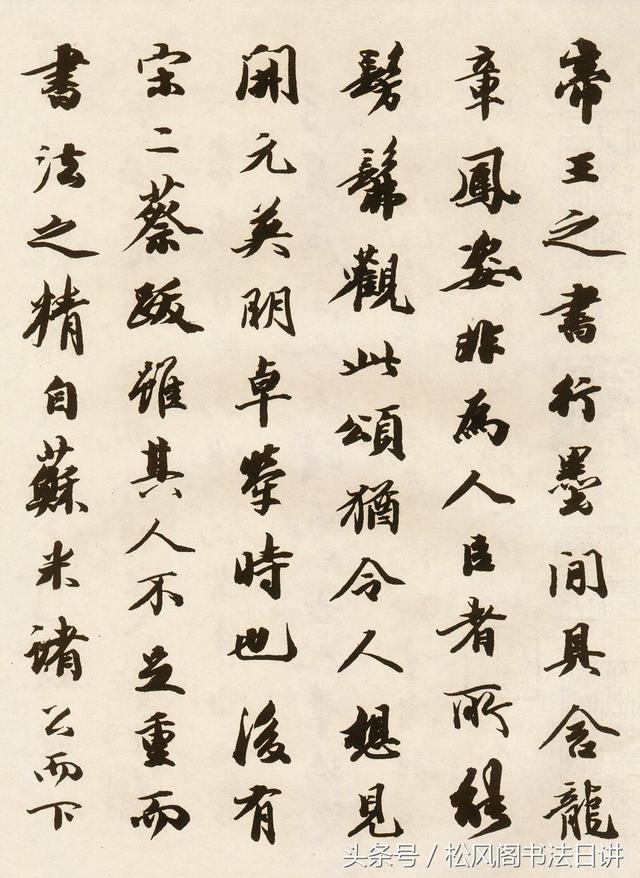 帝王之書行墨間具含龍
章鳳姿非為人臣者所能
髣髴觀此頌猶令人想見
開元英明卓犖時也後有
宋二蔡跋雖其人不足重而
書法之精自蘇米諸公而下
头条号 / 松风阁书法日讲